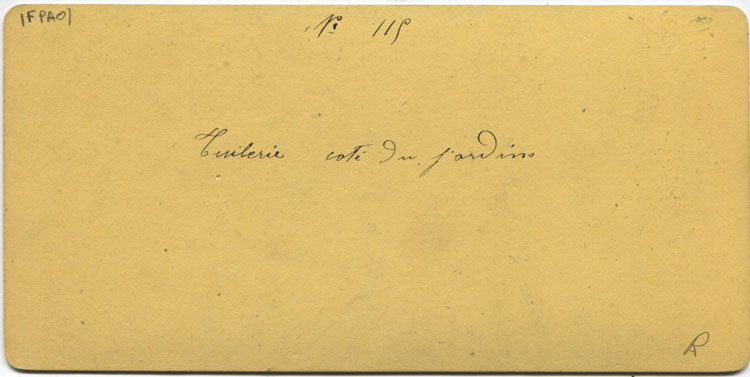 |FPAO|
Nº 115
Tuilerie coté du jardins
R